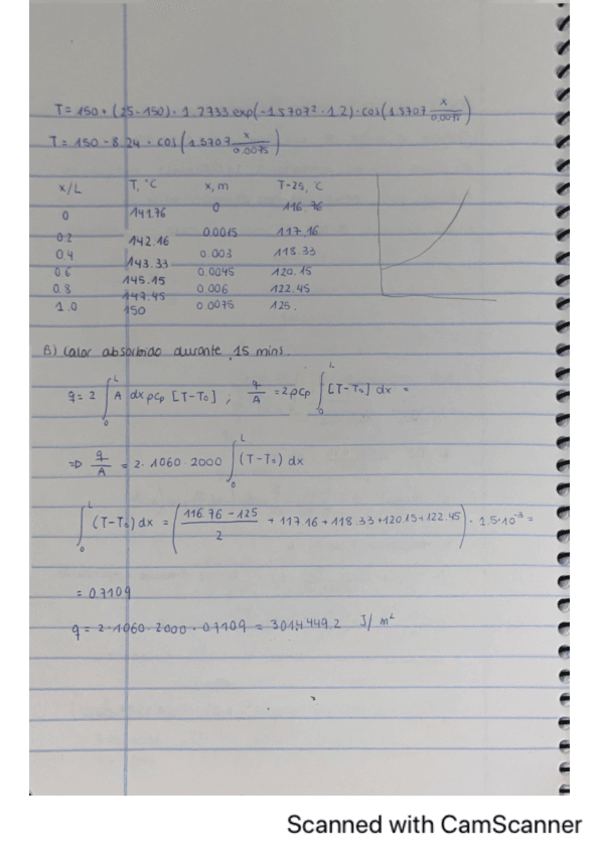 T = 150 + (25 - 150) · 1.2733 exp(-1.5707² · 1.2) · cos(1.5707 x/0.0075)
T = 150 - 8.24 · cos(1.5707 x/0.0075)
x/L T, °C x, m T-25, C
0 141.76 0 116.76
0.2 142.16 0.0015 117.16
0.4 143.33 0.003 118.33
0.6 145.15 0.0045 120.15
0.8 147.45 0.006 122.45
1.0 150 0.0075 125.
B) Calor absorbido durante 15 mins.
q = 2 ∫₀ᴸ A dx ρcp [T-T₀] ; q/A = 2ρcp ∫₀ᴸ [T-T₀] dx =
⇒ q/A = 2 · 1060 · 2000 ∫₀ᴸ (T-T₀) dx
∫₀ᴸ (T-T₀) dx = (116.76 - 125/2 + 117.16 + 118.33 + 120.15 + 122.45) · 1.5·10⁻³ =
= 0.7109
q = 2·1060·2000 · 0.7109 = 3014449.2 J/m²
Scanned with CamScanner